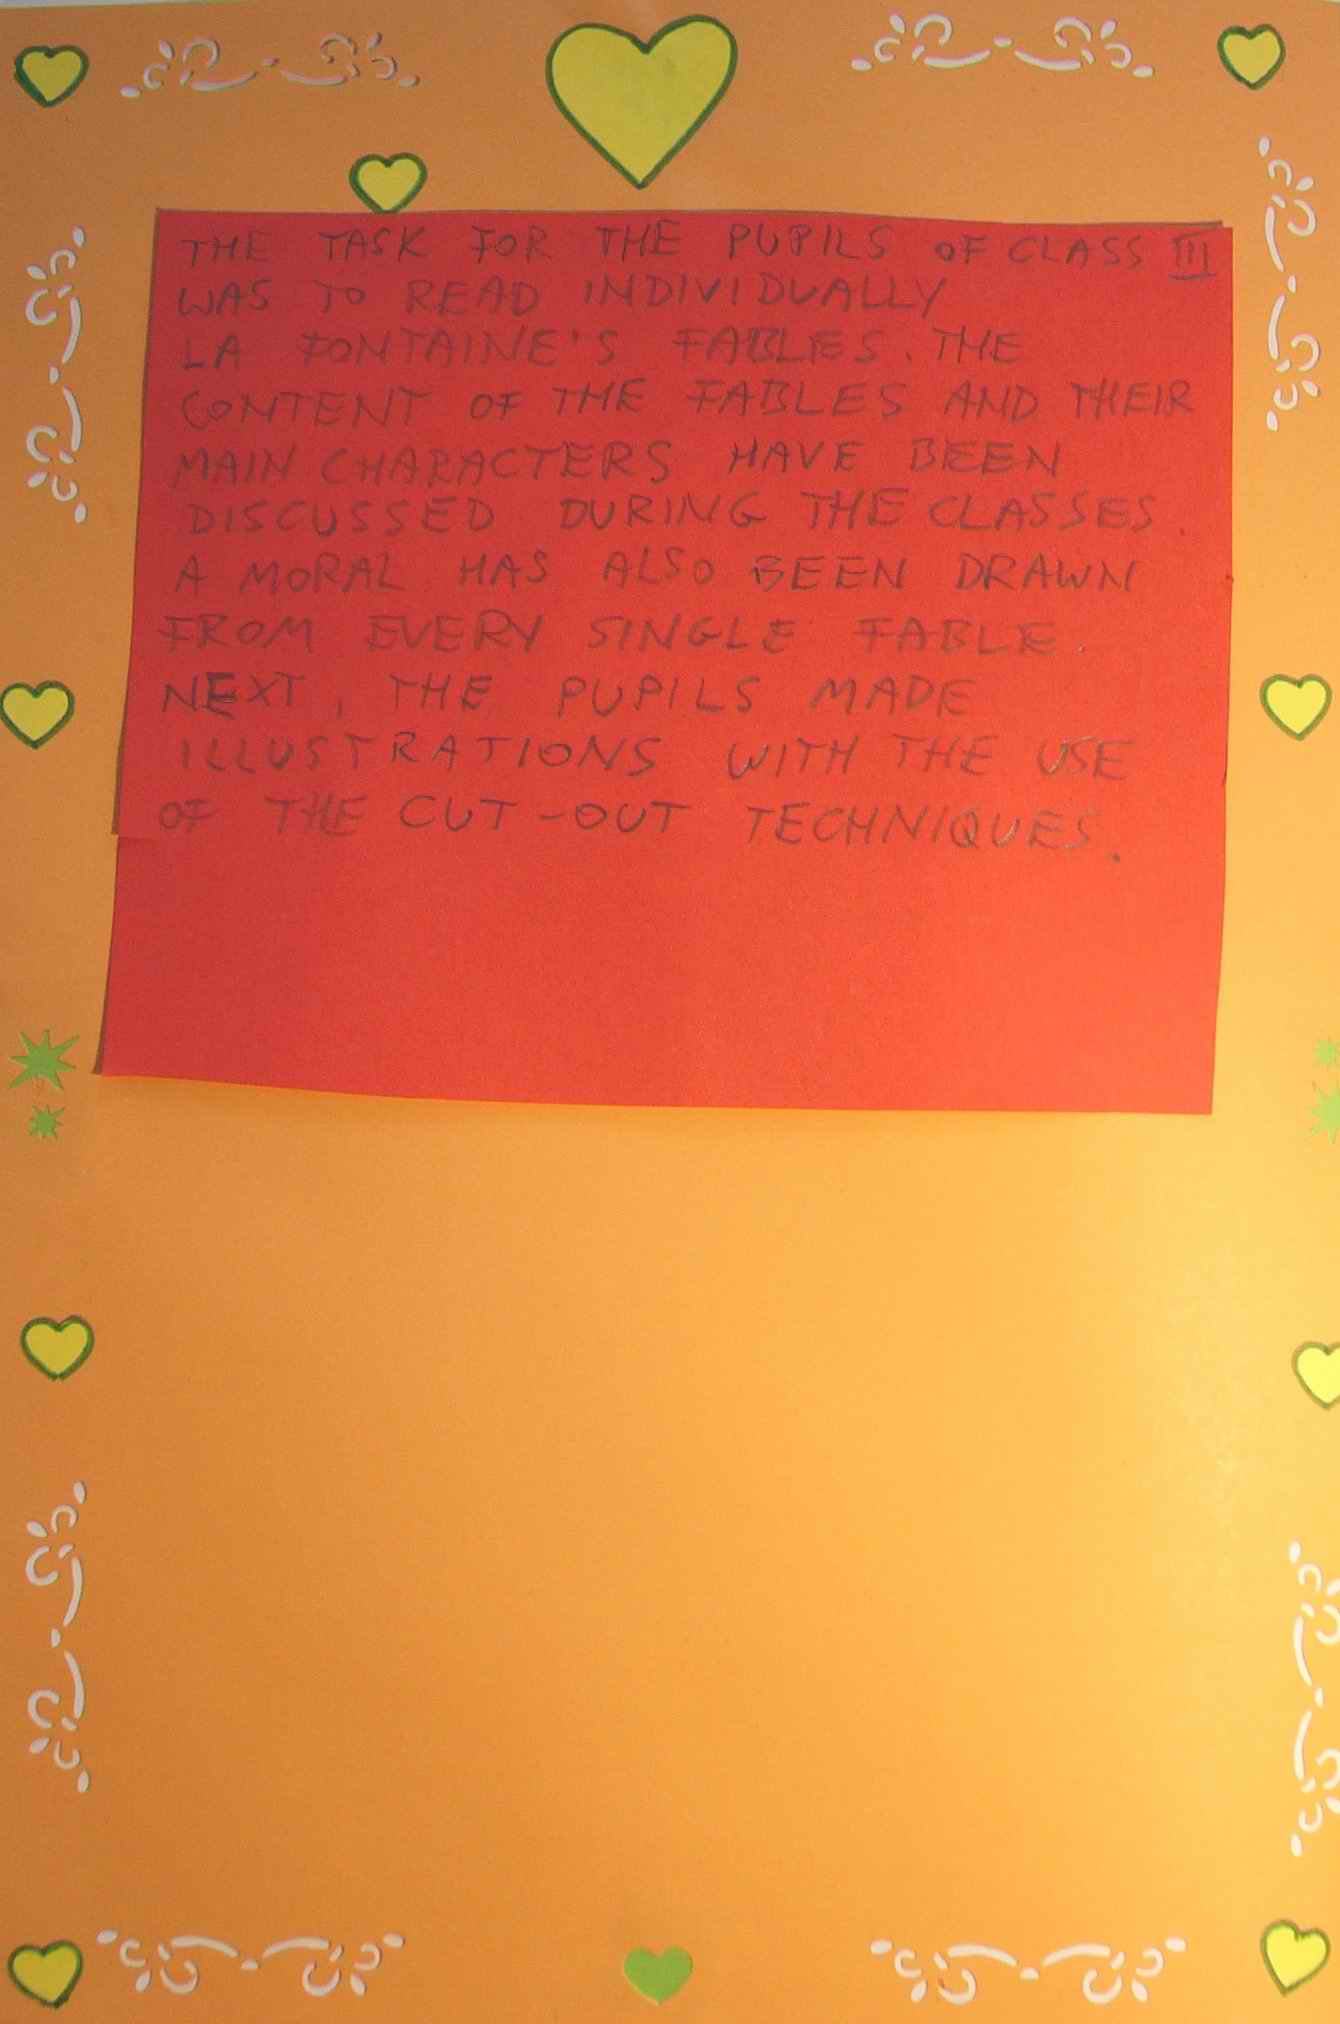 THE TASK FOR THE PUPILS OF CLASS III
WAS TO READ INDIVIDUALLY
LA FONTAINE'S FABLES. THE
CONTENT OF THE FABLES AND THEIR
MAIN CHARACTERS HAVE BEEN
DISCUSSED DURING THE CLASSES.
A MORAL HAS ALSO BEEN DRAWN
FROM EVERY SINGLE FABLE.
NEXT, THE PUPILS MADE
ILLUSTRATIONS WITH THE USE
OF THE CUT-OUT TECHNIQUES.